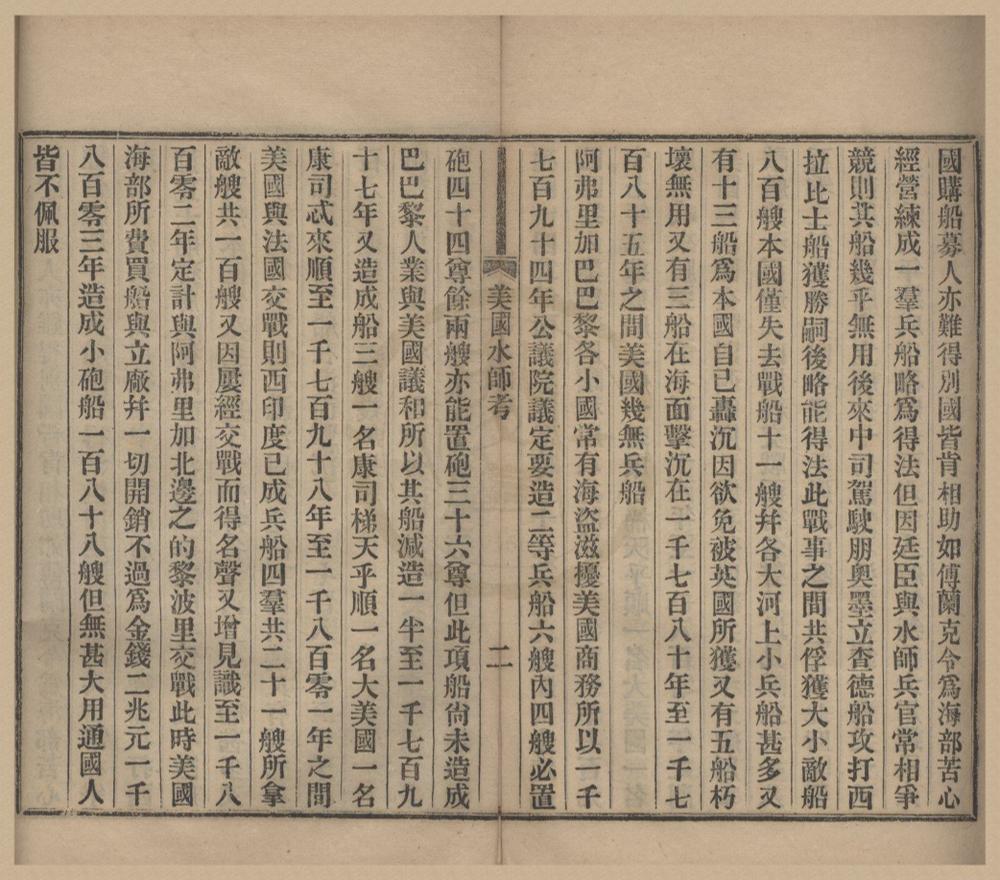 國購船募人亦難得別國皆肯相助如傅蘭克令爲海部苦心
經營練成一羣兵船略爲得法但因廷臣與水師兵官常相爭
競則其船幾乎無用後來中司駕駛朋奧墨立查德船攻打西
拉比士船獲勝嗣後略能得法此戰事之間共俘獲大小敵船
八百艘本國僅失去戰船十一艘幷各大河上小兵船甚多又
有十三船爲本國自己轟沉因欲免被英國所獲又有五船朽
壞無用又有三船在海面擊沉在一千七百八十年至一千七
百八十五年之間美國幾無兵船
阿弗里加巴巴黎各小國常有海盜滋擾美國商務所以一千
七百九十四年公議院議定要造二等兵船六艘內四艘必置
美國水師考
二
砲四十四尊餘兩艘亦能置砲三十六尊但此項船尙未造成
巴巴黎人業與美國議和所以其船減造一半至一千七百九
十七年又造成船三艘一名康司梯天乎順一名大美國一名
康司忒來順至一千七百九十八年至一千八百零一年之間
美國與法國交戰則西印度已成兵船四羣共二十一艘所拿
敵艘共一百艘又因屢經交戰而得名聲又增見識至一千八
百零二年定計與阿弗里加北邊之的黎波里交戰此時美國
海部所費買船與立廠幷一切開銷不過爲金錢二兆元一千
八百零三年造成小砲船一百八十八艘但無甚大用通國人
皆不佩服